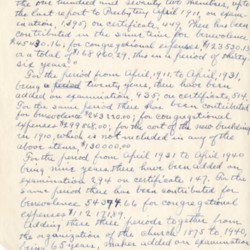 the one hundred and seventy two members, up to
the last report to Presbytery April 1911 on exam-
ination, (495) on certificate, 449. There has been
contributed in the same time for benevolence
for congregational expenses $123,520.13
or a total of $168,460.29, this in a period of thirty
six years."
In the period from April, 1911 to April 1931,
being a period twenty years, there have been
added on examination 435 on certificate, 514.
In the same period there has been contributed
for benevolence $143,170.00, for congregational
expenses $299,058.00, for the cost of the new building
in 1910, which is not included in any of the
above items, $130,000.00
In the period from April 1931 to April 1940
being nine years there have been added on
examination, 294 on certificate 147. In this
same period there has been contributed for
benevolence 54,074.66 for congregational
expenses $112,171.39.
Adding these three periods together from
the organization of the church 1875 to 1940
being 65 years, number added on examination